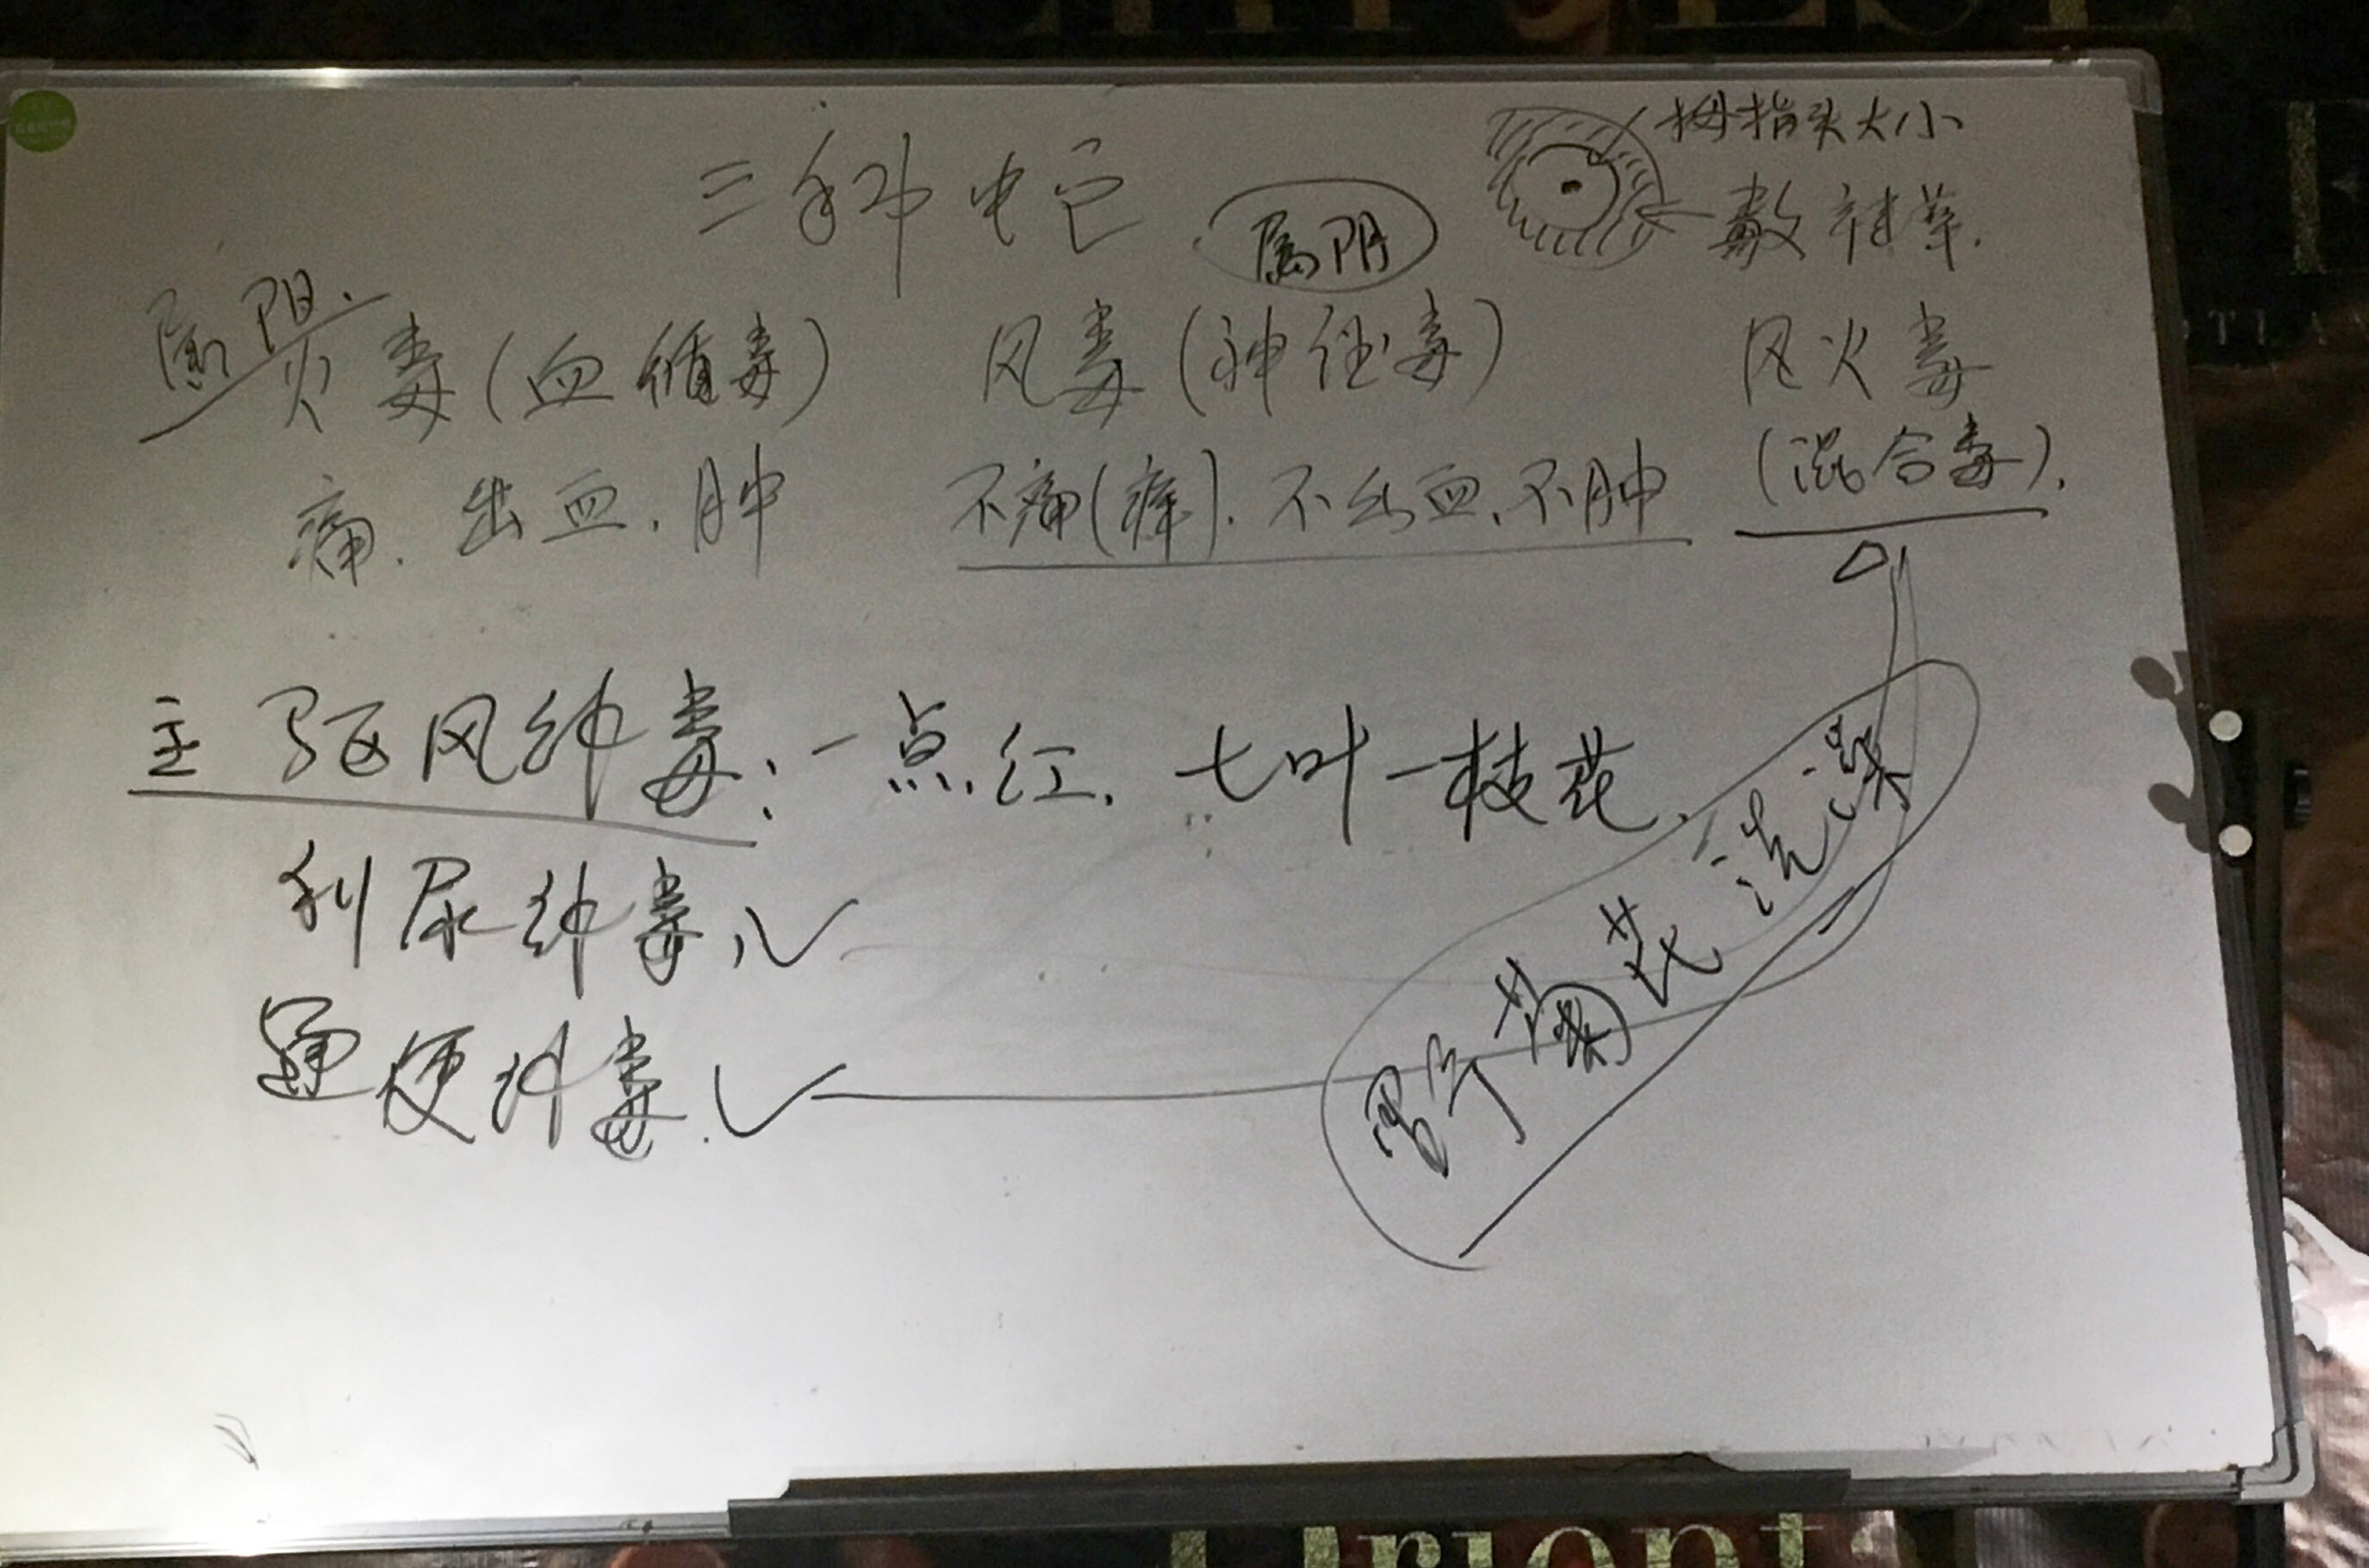 三种蛇
拇指头大小
敷祛草.
属阴
属阳.
火毒(血循毒)
风毒(神经毒)
风火毒
(混合毒).
痛.出血.肿
不痛(痒).不出血.不肿
主驱风神毒:一点红.七叶一枝花.
利尿神毒
通便神毒.
野菊花洗澡